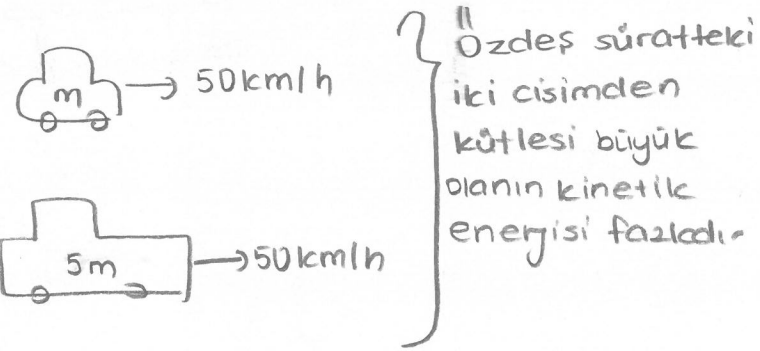 m → 50km/h
5m → 50km/h
Özdeş süratteki
iki cisimden
kütlesi büyük
olanın kinetik
enerjisi fazladır